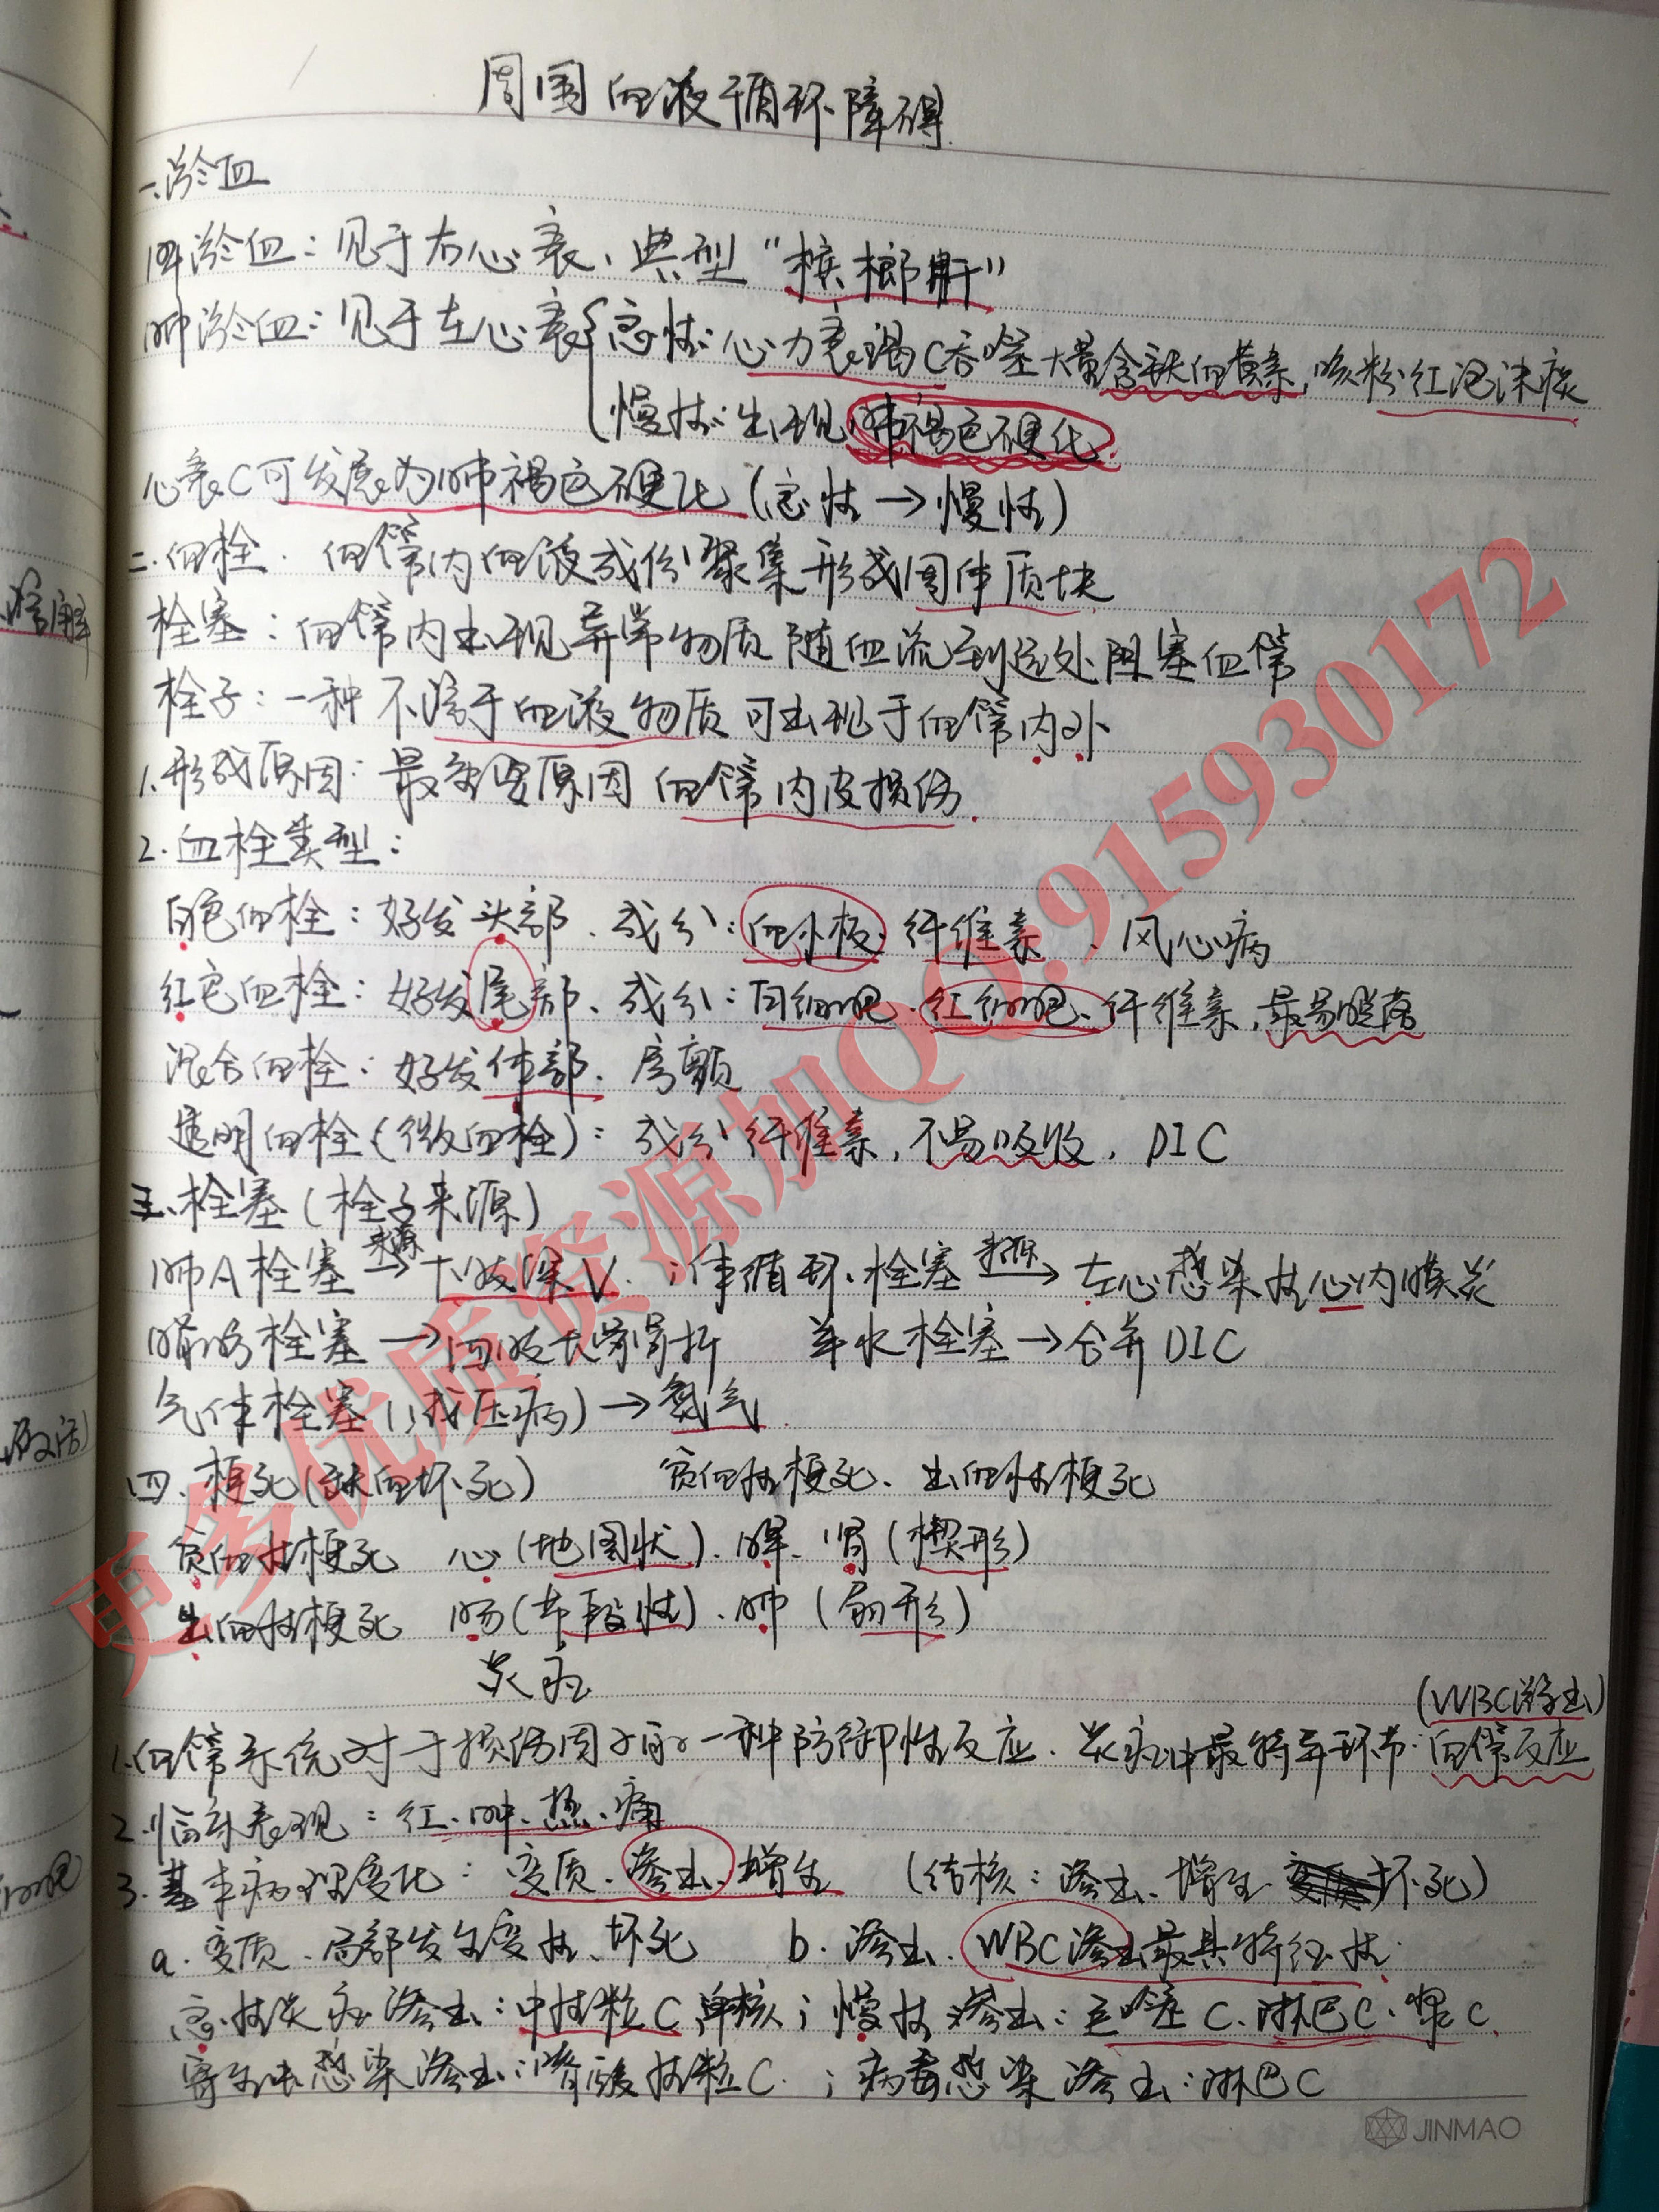 周围血液循环障碍
一.淤血
肝淤血：见于右心衰、典型“槟榔肝”
肺淤血：见于左心衰 急性：心力衰竭C吞噬大量含铁血黄素，咳粉红泡沫痰
慢性：出现肺褐色硬化
心衰C可发展为肺褐色硬化(急性→慢性)
二.血栓.血管内血液成份聚集形成固体质块
栓塞：血管内出现异常物质随血流到远处阻塞血管
栓子：一种不溶于血液物质可出现于血管内外
1.形成原因：最重要原因 血管内皮损伤.
2.血栓类型：
白色血栓：好发头部、成分：血小板.纤维素、风心病
红色血栓：好发尾部、成分：白细胞.红细胞.纤维素,最易脱落
混合血栓：好发体部、房颤
透明血栓(微血栓)：成分纤维素,不易吸收,DIC
三.栓塞(栓子来源)
肺A栓塞 来源→ 下肢深V.；体循环.栓塞 来源→ 左心感染性心内膜炎
脂肪栓塞→四肢长骨骨折 羊水栓塞→合并DIC
气体栓塞(减压病)→氮气.
四.梗死(缺血坏死) 贫血性梗死、出血性梗死
贫血性梗死 心(地图状).脾.肾(楔形)
出血性梗死 肠(节段性).肺(扇形)
炎症
(WBC渗出)
1.血管系统对于损伤因子的一种防御性反应.炎症中最特异环节:血管反应
2.临床表现：红.肿.热.痛
3.基本病理变化：变质.渗出.增生 (结核：渗出.增生.坏死)
a.变质.局部发生变性、坏死 b.渗出.WBC渗出最具特征性.
急性炎症渗出：中性粒C,单核；慢性渗出：巨噬C.淋巴C.浆C.
寄生虫感染渗出：嗜酸性粒C.；病毒感染渗出：淋巴C
JINMAO
更多优质资源加QQ:915930172